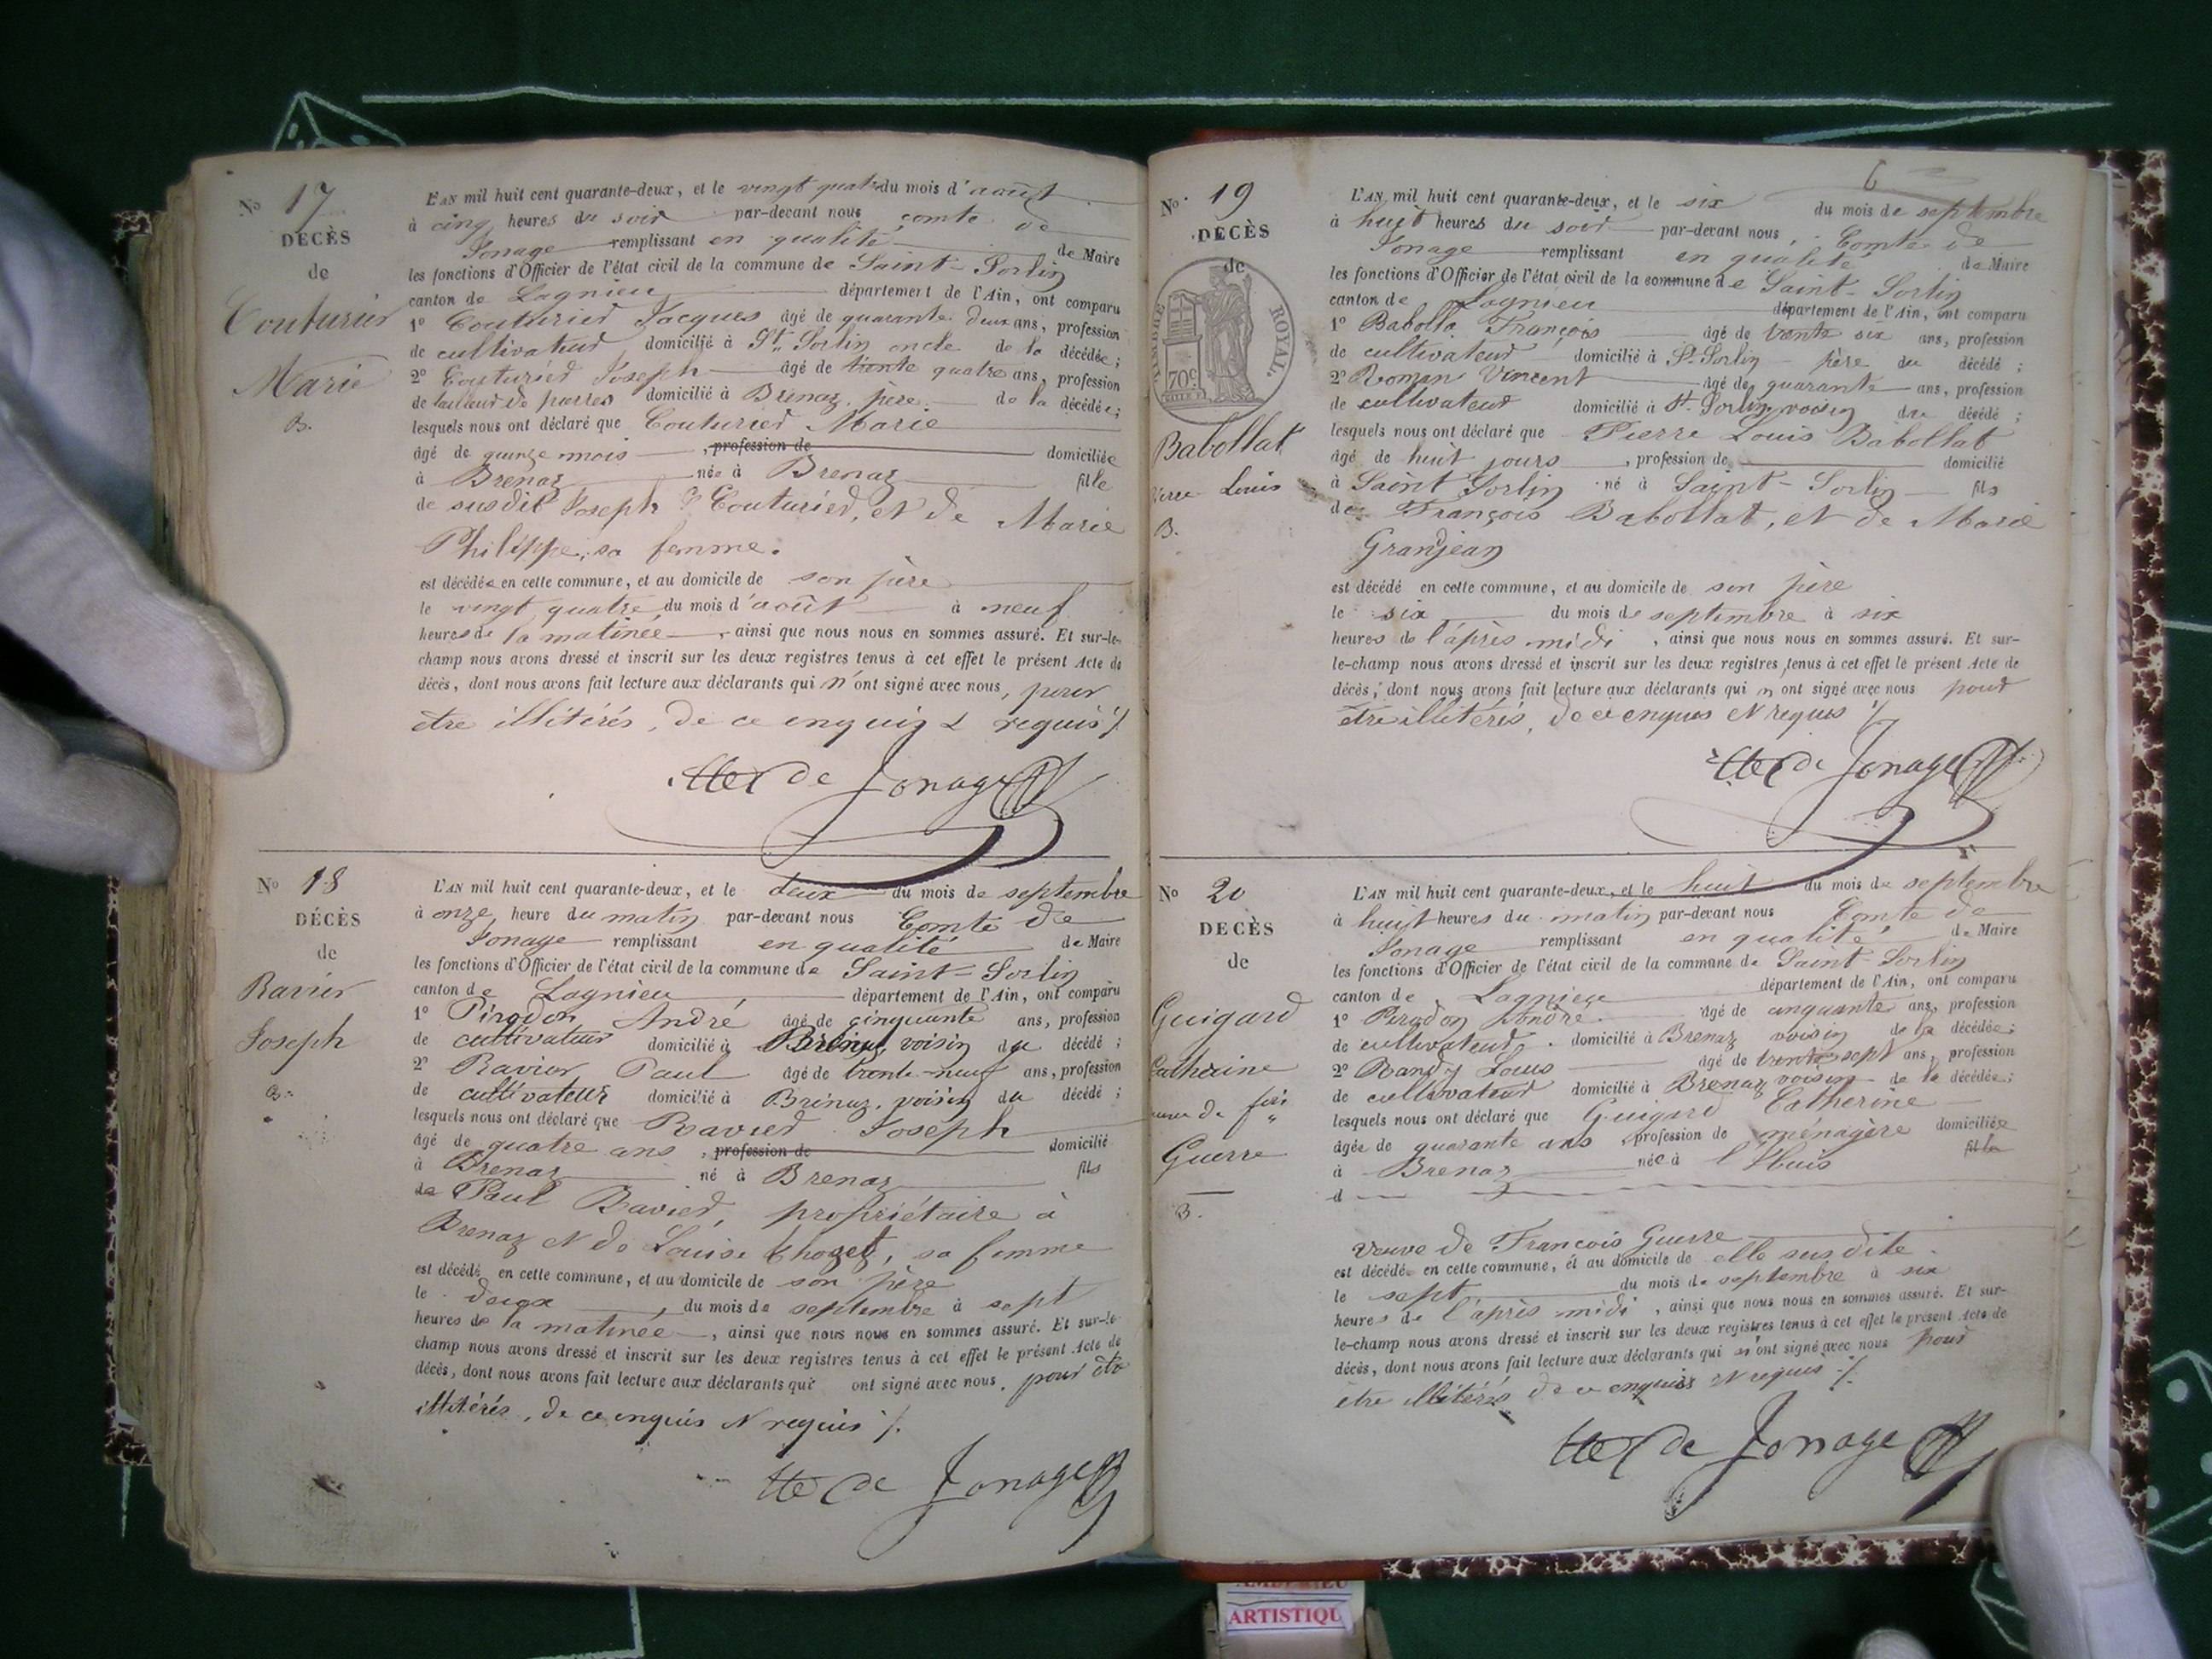 No 17
DÉCÈS
de
Couturier
Marie
B.
L'AN mil huit cent quarante-deux, et le vingt quatre du mois d'août
à cinq heures du soir par-devant nous, comte de
Jonage remplissant en qualité de Maire
les fonctions d'Officier de l'état civil de la commune de Saint-Sorlin
canton de Lagnieu département de l'Ain, ont comparu
1o Couturier Jacques âgé de quarante deux ans, profession
de cultivateur domicilié à St Sorlin oncle de la décédée;
2o Couturier Joseph âgé de trente quatre ans, profession
de tailleur de pierres domicilié à Brenaz, père de la décédée;
lesquels nous ont déclaré que Couturier Marie
âgé de quinze mois, profession de domiciliée
à Brenaz née à Brenaz fille
de susdit Joseph Couturier, et de Marie
Philippe, sa femme.
est décédée en cette commune, et au domicile de son père
le vingt quatre du mois d'août à neuf
heures de la matinée, ainsi que nous nous en sommes assuré. Et sur-le-
champ nous avons dressé et inscrit sur les deux registres tenus à cet effet le présent Acte de
décès, dont nous avons fait lecture aux déclarants qui n'ont signé avec nous, pour
être illitérés, de ce enquis & requis ./.
de Jonage
No 18
DÉCÈS
de
Ravier
Joseph
B.
L'AN mil huit cent quarante-deux, et le deux du mois de septembre
à onze heure du matin par-devant nous Comte de
Jonage remplissant en qualité de Maire
les fonctions d'Officier de l'état civil de la commune de Saint-Sorlin
canton de Lagnieu département de l'Ain, ont comparu
1o Pirodon André âgé de cinquante ans, profession
de cultivateur domicilié à Brenaz, voisin du décédé;
2o Ravier Paul âgé de trente-neuf ans, profession
de cultivateur domicilié à Brenaz, voisin du décédé;
lesquels nous ont déclaré que Ravier Joseph
âgé de quatre ans, profession de domicilié
à Brenaz né à Brenaz fils
de Paul Ravier, propriétaire à
Brenaz et de Louise Chozet, sa femme
est décédé en cette commune, et au domicile de son père
le deux, du mois de septembre à sept
heures de la matinée, ainsi que nous nous en sommes assuré. Et sur-le-
champ nous avons dressé et inscrit sur les deux registres tenus à cet effet le présent Acte de
décès, dont nous avons fait lecture aux déclarants qui ont signé avec nous, pour être
illitérés, de ce enquis et requis ./.
de Jonage
6
No 19
DÉCÈS
de
TIMBRE ROYAL.
70c
Babollat
Pierre Louis
B.
L'AN mil huit cent quarante-deux, et le six du mois de septembre
à huit heures du soir par-devant nous, Comte de
Jonage remplissant en qualité de Maire
les fonctions d'Officier de l'état civil de la commune de Saint-Sorlin
canton de Lagnieu département de l'Ain, ont comparu
1o Babolla François âgé de trente six ans, profession
de cultivateur domicilié à St Sorlin père du décédé;
2o Roman Vincent âgé de quarante ans, profession
de cultivateur domicilié à St Sorlin, voisin du décédé;
lesquels nous ont déclaré que Pierre Louis Babollat
âgé de huit jours, profession de domicilié
à Saint Sorlin né à Saint-Sorlin fils
de François Babollat, et de Marie
Granjean
est décédé en cette commune, et au domicile de son père
le six du mois de septembre à six
heures de l'après midi, ainsi que nous nous en sommes assuré. Et sur-
le-champ nous avons dressé et inscrit sur les deux registres tenus à cet effet le présent Acte de
décès, dont nous avons fait lecture aux déclarants qui n'ont signé avec nous pour
être illitérés, de ce enquis et requis ./.
de Jonage
No 20
DÉCÈS
de
Guigard
Catherine
veuve de
Guerre
B.
L'AN mil huit cent quarante-deux, et le huit du mois de septembre
à huit heures du matin par-devant nous Comte de
Jonage remplissant en qualité de Maire
les fonctions d'Officier de l'état civil de la commune de Saint-Sorlin
canton de Lagnieu département de l'Ain, ont comparu
1o Pirodon André âgé de cinquante ans, profession
de cultivateur, domicilié à Brenaz voisin de la décédée;
2o Randy Louis âgé de trente sept ans, profession
de cultivateur domicilié à Brenaz, voisin de la décédée;
lesquels nous ont déclaré que Guigard Catherine
âgée de quarante ans profession de ménagère domiciliée
à Brenaz née à l'Huis fille
d
veuve de François Guerre
est décédée en cette commune, et au domicile de elle susdite
le sept du mois de septembre à six
heures de l'après midi, ainsi que nous nous en sommes assuré. Et sur-
le-champ nous avons dressé et inscrit sur les deux registres tenus à cet effet le présent Acte de
décès, dont nous avons fait lecture aux déclarants qui n'ont signé avec nous pour
être illitérés de ce enquis et requis ./.
de Jonage
ARTISTIQU